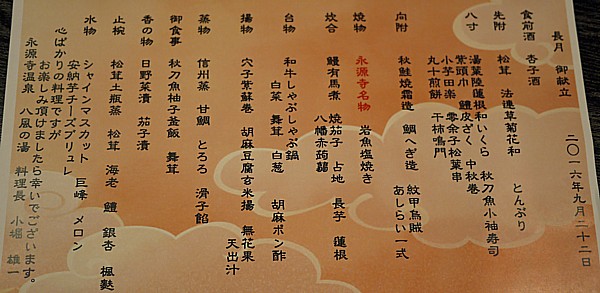 長月 御献立
二〇一六年九月二十二日
食前酒 杏子酒
先附 松茸 法連草菊花和 とんぶり
八寸 湯葉陸蓮根和いくら 秋刀魚小袖寿司
鱧皮ざく 中秋巻
紫頭巾 零余子松葉串
小芋田楽 干柿鳴門
丸十煎餅
向附 秋鮭焼霜造 鯛へぎ造 紋甲烏賊
あしらい一式
焼物 永源寺名物 岩魚塩焼き
炊合 鰻有馬煮 焼茄子 占地 長芋 蓮根
八幡赤蒟蒻
台物 和牛しゃぶしゃぶ鍋
白菜 舞茸 白葱 胡麻ポン酢
揚物 穴子紫蘇巻 胡麻豆腐玄米揚 無花果
天出汁
蒸物 信州蒸 甘鯛 とろろ 滑子餡
御食事 秋刀魚柚子釜飯 舞茸
香の物 日野菜漬 茄子漬
止椀 松茸土瓶蒸 松茸 海老 鱧 銀杏 楓麩
水物 シャインマスカット 巨峰 メロン
安納芋チーズブリュレ
心ばかりの料理ですが
お楽しみ頂けましたら幸いでございます。
永源寺温泉 八風の湯 料理長 小堀 雄一